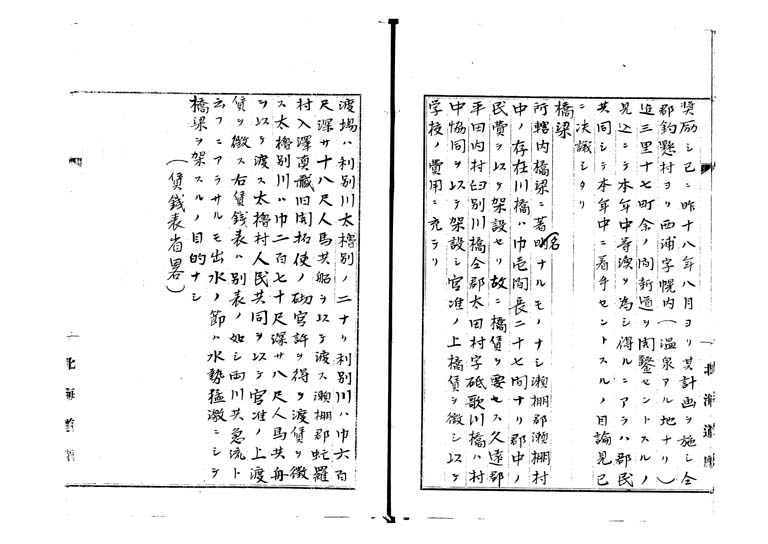 奨励シ已ニ昨十八年八月ヨリ其計画ヲ施シ仝
郡釣懸村ヨリ西浦字幌内(温泉アル地ナリ)
迠三里十七町余ノ間新道ヲ開鑿セントスルノ
見込ニテ本年中等渡ヲ為シ得ルニアラハ郡民
共同シテ本年中ニ着手セントスルノ目論見已
ニ決議シタリ
橋梁
所轄内橋梁ニ著明名ナルモノナシ瀬棚郡瀬棚村
中ノ存在川橋ハ巾壱間長二十七間ナリ郡中ノ
民費ヲ以テ架設セリ故ニ橋賃ヲ要セス久遠郡
平田内村臼別川橋仝郡太田村字砥歌川橋ハ村
中協同ヲ以テ架設シ官准ノ上橋賃ヲ徴シ以テ
学校ノ費用ニ充ラリ
渡場ハ利別川太櫓別ノ二ナリ利別川ハ巾六百
尺深サ十八尺人馬共船ヲ以テ渡ス瀬棚郡蛇羅
村入澤頂蔵旧開拓使ノ砌官許ヲ得テ渡賃ヲ徴
ス太櫓別川ハ巾二百七十尺深サ八尺人馬共舟
ヲ以テ渡ス太櫓村人民共同ヲ以テ官准ノ上渡
賃ヲ徴ス右賃銭表ハ別表ノ如シ両川共急流ト
云フニアラサルモ出水ノ節ハ水勢猛激ニシテ
橋梁ヲ架スルノ目的ナシ
(賃銭表省畧)